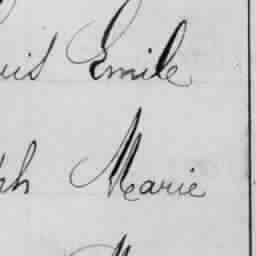 uis Emile
ph Marie